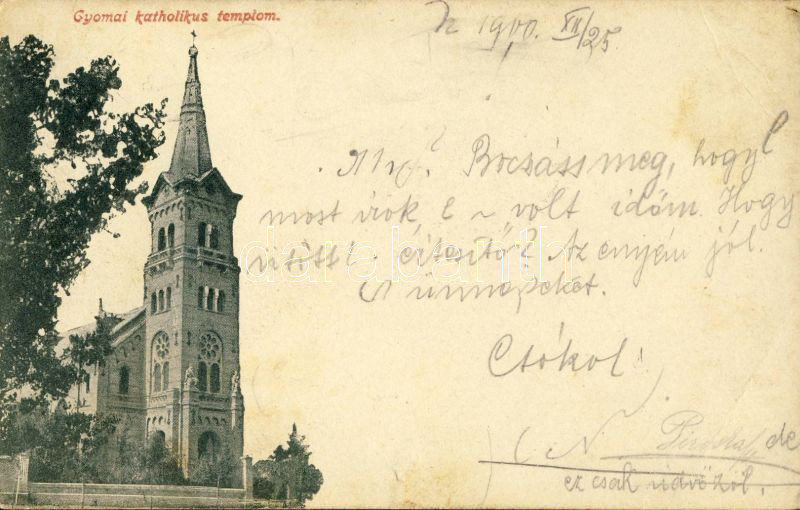 Gyomai katholikus templom.
1900. XII/25
Bocsáss meg, hogy
most írok volt időm. Hogy
ütött értesítő? Az enyém jól.
ünnepeket.
Csókol
de
ez csak üdvözöl.